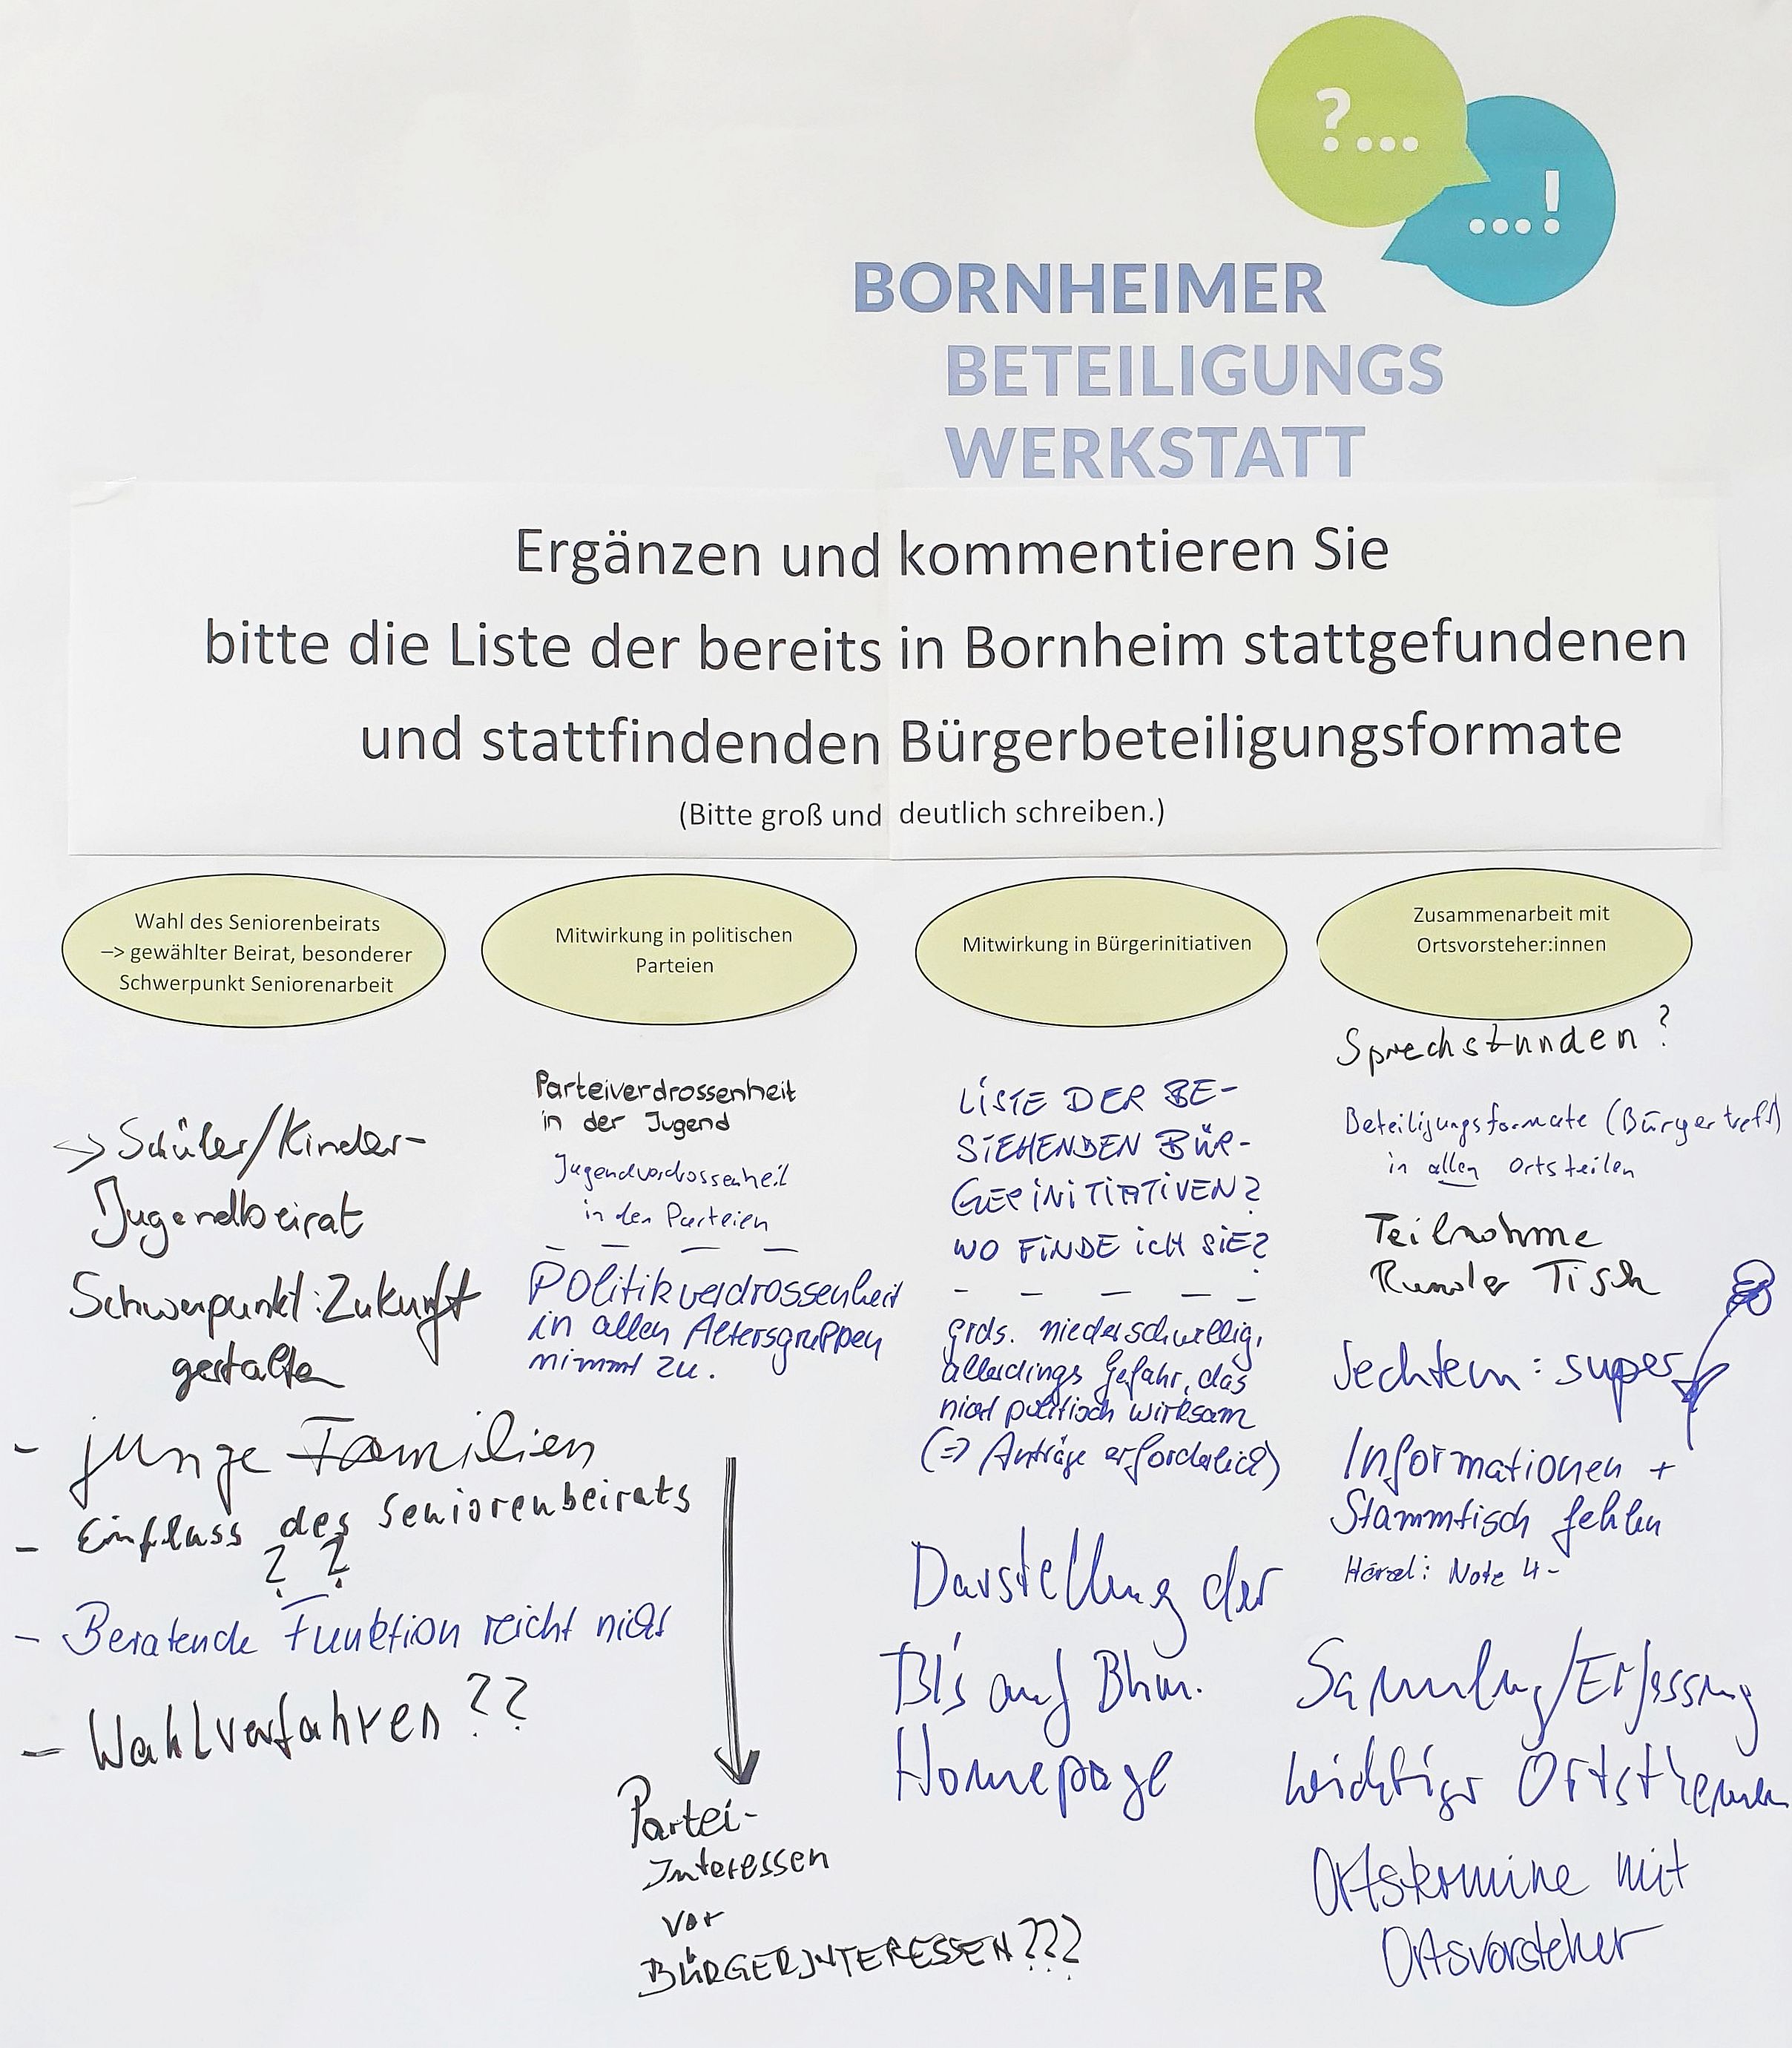 ?...
...!
BORNHEIMER
BETEILIGUNGS
WERKSTATT
Ergänzen und kommentieren Sie
bitte die Liste der bereits in Bornheim stattgefundenen
und stattfindenden Bürgerbeteiligungsformate
(Bitte groß und deutlich schreiben.)
Wahl des Seniorenbeirats
–> gewählter Beirat, besonderer
Schwerpunkt Seniorenarbeit
-> Schüler/Kinder-
Jugendbeirat
Schwerpunkt: Zukunft
gestalten
- junge Familien
- Einfluss des Seniorenbeirats
? ?
- Beratende Funktion reicht nicht
- Wahlverfahren ??
Mitwirkung in politischen
Parteien
Parteiverdrossenheit
in der Jugend
Jugendverdrossenheit
in den Parteien
Politikverdrossenheit
in allen Altersgruppen
nimmt zu.
Partei-
Interessen
vor
BÜRGERINTERESSEN???
Mitwirkung in Bürgerinitiativen
LISTE DER BE-
STEHENDEN BÜR-
GERINITIATIVEN?
WO FINDE ICH SIE?
grds. niederschwellig,
allerdings Gefahr, das
nicht politisch wirksam
(=> Anträge erforderlich)
Darstellung der
BI's auf Bhm.
Homepage
Zusammenarbeit mit
Ortsvorsteher:innen
Sprechstunden?
Beteiligungsformate (Bürgertreff)
in allen Ortsteilen
Teilnahme
Runder Tisch
Sechtem: super
Informationen +
Stammtisch fehlen
Note 4-
Sammlung/Erfassung
wichtiger Ortsthemen
Ortstermine mit
Ortsvorsteher